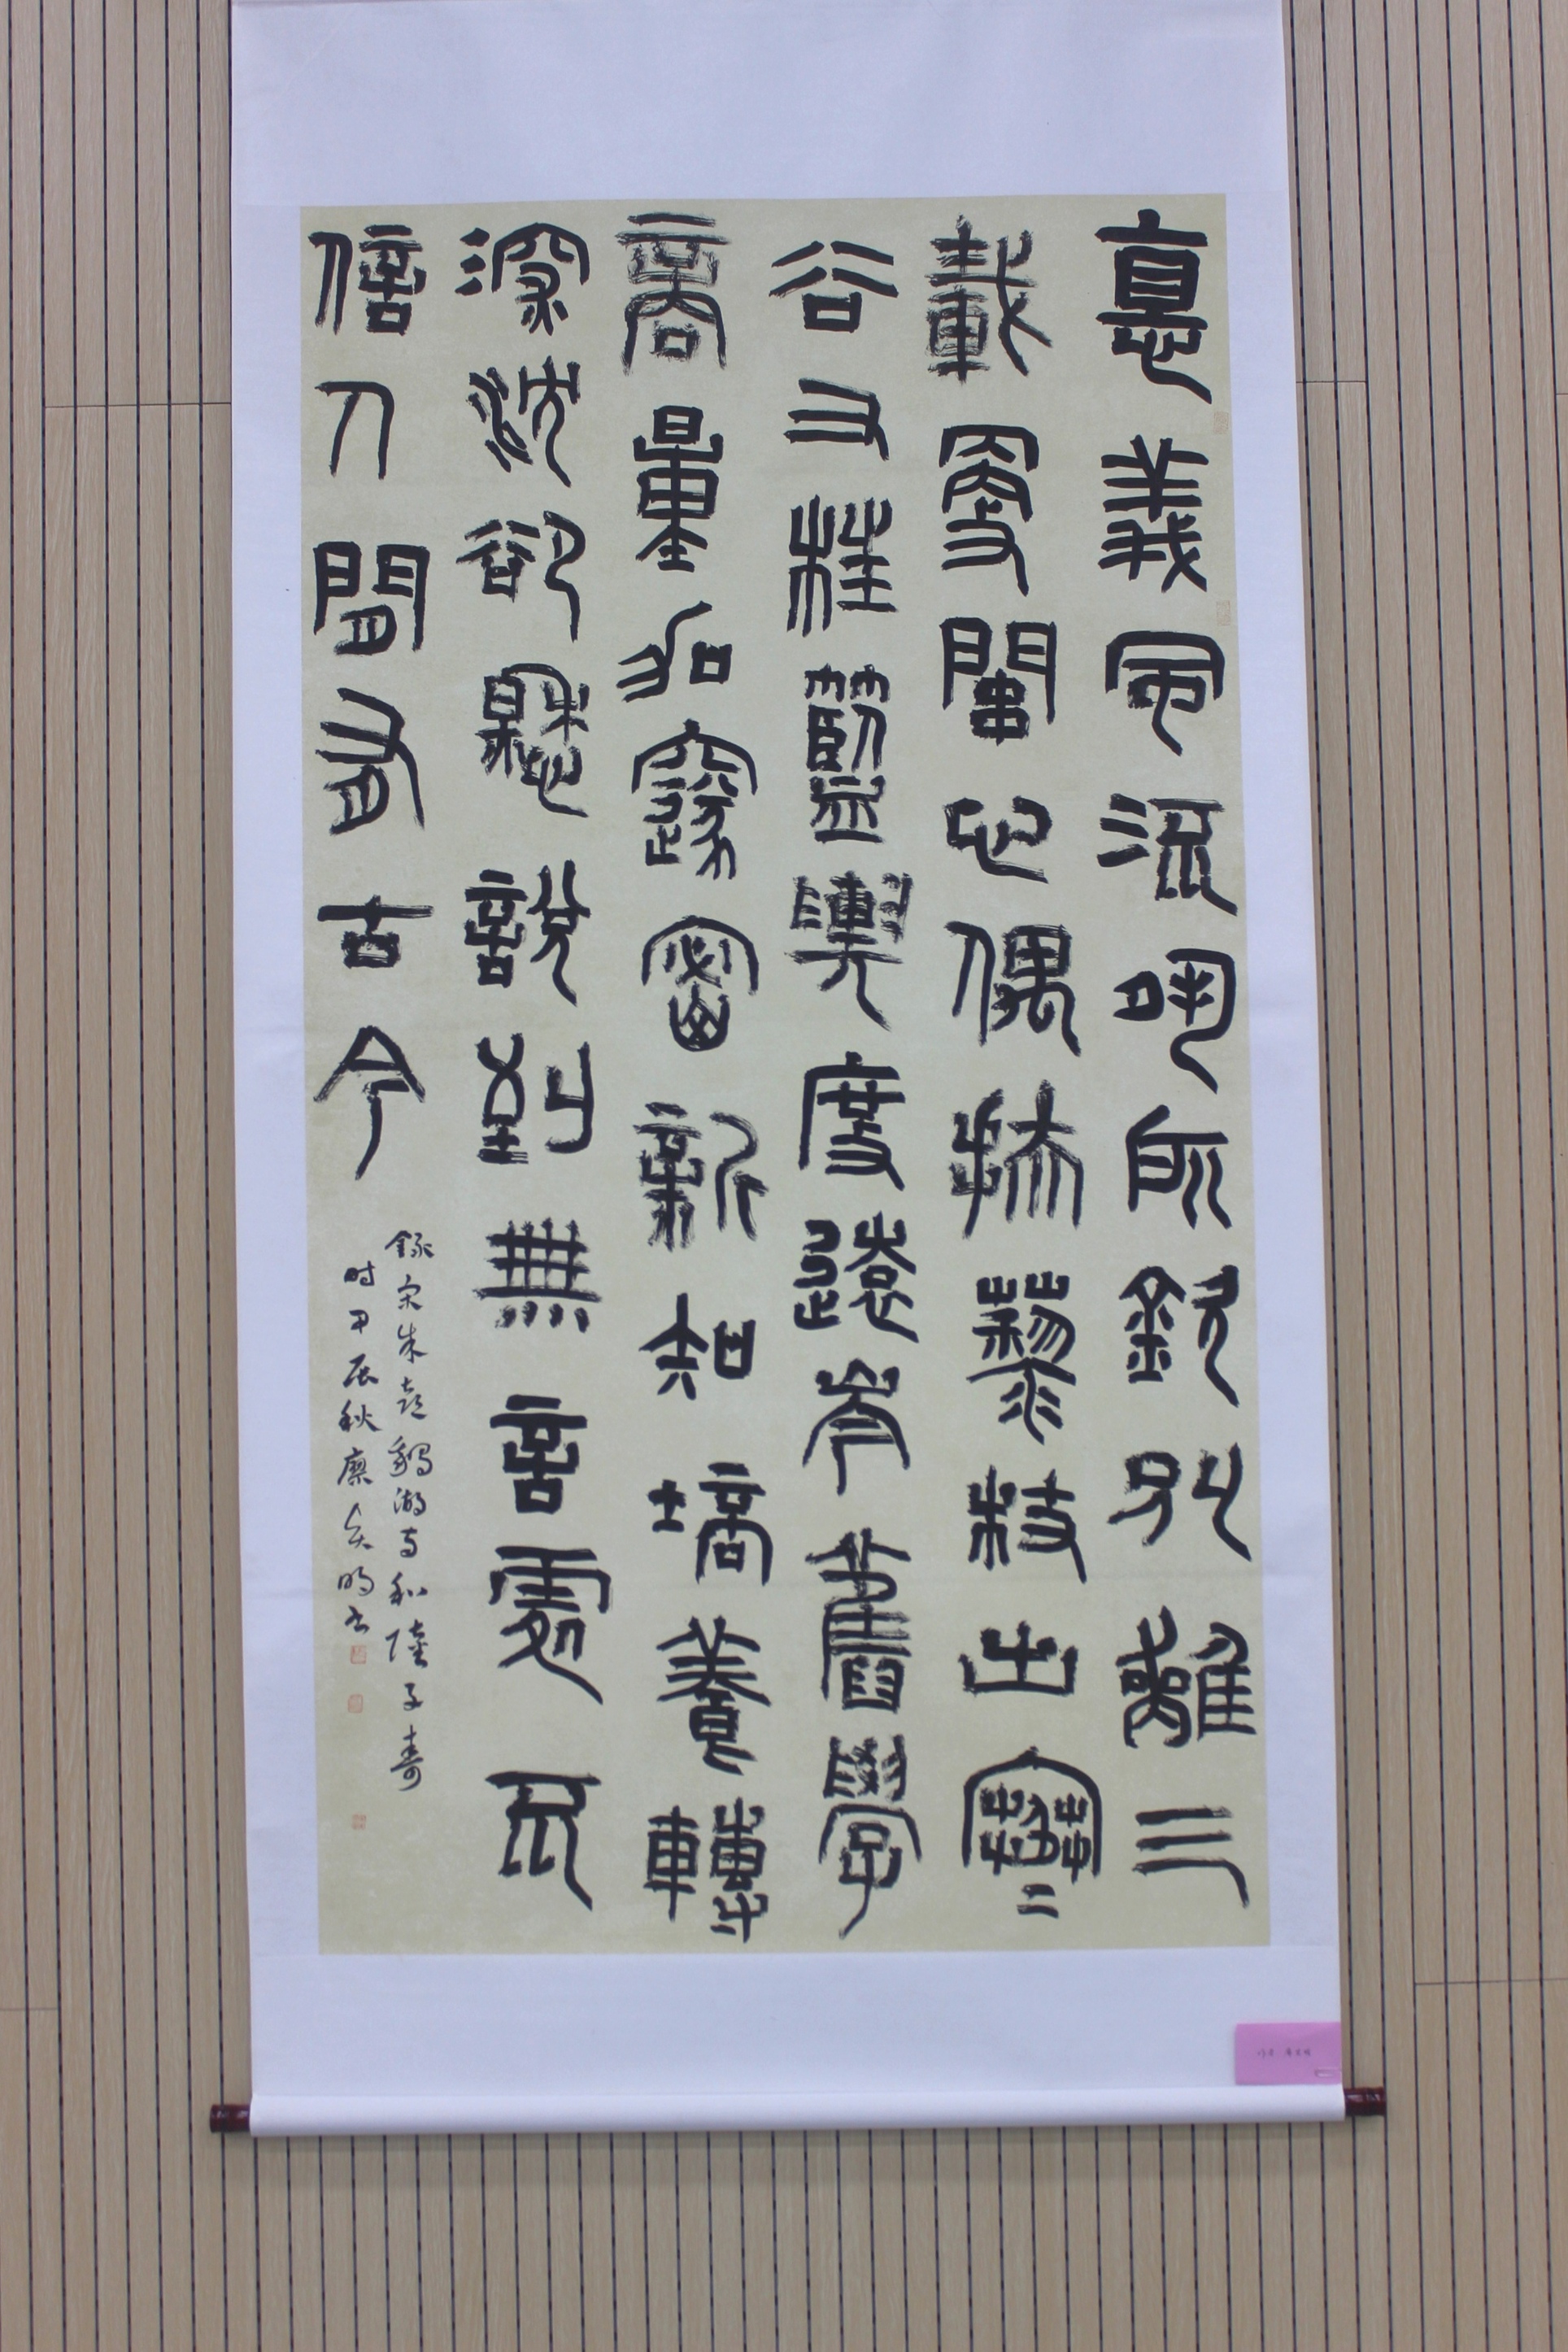 悳義風流夙所欽別離三
載更關心偶扶藜杖出寒
谷又枉籃輿度遠岑舊學
商量加邃密新知培養轉
深沈卻懸說到無言處不
信人間有古今
錄宋朱熹鵝湖寺和陸子壽
时甲辰秋